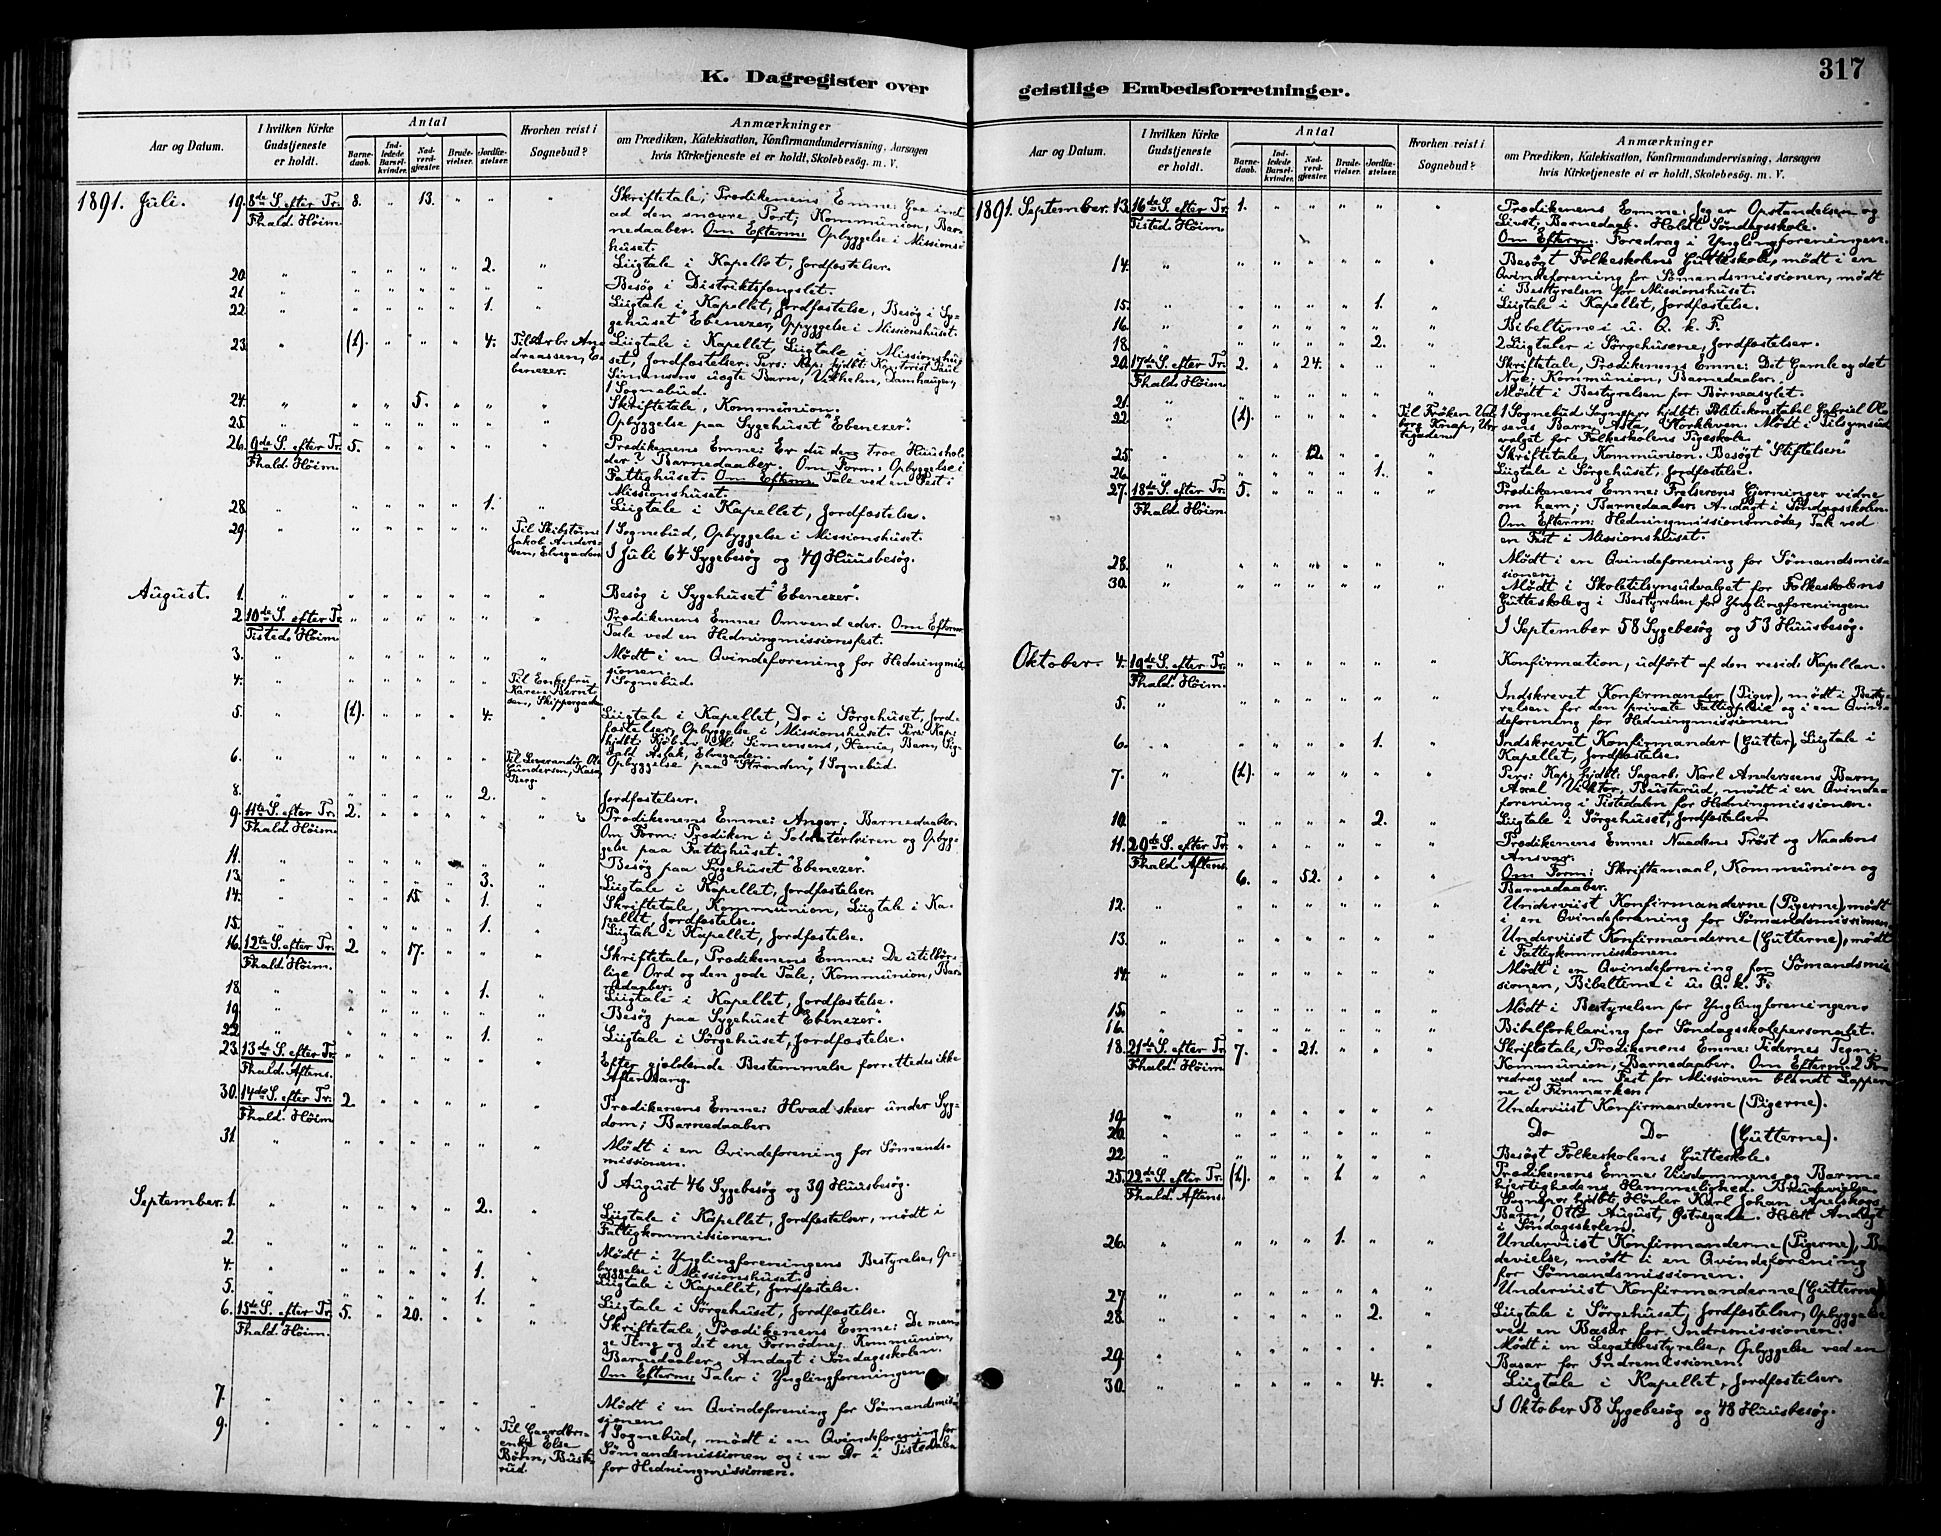 K. Dagregister over
Aar og Datum.
I hvilken Kirke Gudstjeneste er holdt.
Antal
Barnedaab.
Indledede Barselkvinder.
Nadverdgjester.
Brudevielser.
Jordfæstelser.
Hvorhen reist i Sognebud?
Anmærkninger
om Prædiken, Katekisation, Konfirmandundervisning, Aarsagen
hvis Kirketjeneste ei er holdt, Skolebesøg. m. V.
1891. Juli. 19. 8de S. efter Tr. 8. " 13. " " " Skriftetale, Prædikenens Emne: Gaa ind
Fhald. Höim. ad den snævre Port, Kommünion, Bar-
nedaaber. Om Efterm: Opbyggelse i Missions-
huset.
20. " " " " " 2. " Liigtale i Kapellet, Jordfæstelser.
21. " " " " " " " Besøg i Distriktsfængslet.
22. " " " " " 1. " Liigtale i Kapellet, Jordfæstelse, Besøg i Sy-
gehüset "Ebenezer", Opbyggelse i Missionshüset.
23. " (1). " " " 4. Til Arb. An- Liigtale i Kapellet, Liigtale i Missionshü-
dreassen, E- set, Jordfæstelser. Pers. Kap. hjdbt:
benezer. Simensens uægte Barn, Vilhelm, Damhaugen,
1 Sognebud.
24. " " " 5. " " " Skriftetale, Kommünion.
25. " " " " " " " Opbyggelse paa Sygehüset "Ebenezer".
26. 9de S. efter Tr. 5. " " " " " Prædikenens Emne: Er du den troe Huushol-
Fhald. Höim. der? Barnedaaber. Om Form: Opbyggelse i
Fattighüset. Om Efterm: Tale ved en Fest i
Missionshüset.
28. " " " " " 1. " Liigtale i Kapellet, Jordfæstelse.
29. " " " " " " Til Skibstøm. 1 Sognebud, Opbyggelse i Missionshüset.
Jakob Anders- I Juli 64 Sygebesøg og 49 Huusbesøg.
sen, Elvegaden
August. 1. " " " " " " " Besøg i Sygehüset "Ebenezer".
2. 10de S. efter Tr. " " " " " " Prædikenens Emne: Omvend eder. Om Efterm:
Tisted. Höim. Tale ved en Hedningmissionsfest.
3. " " " " " " " Mødt i en Qvindeforening for Hedningmis-
sionen.
4. " " " " " " Til Enkefru 1 Sognebud.
Karen Bernt-
sen, Skippergaden
5. " (1). " " " 4. " Liigtale i Kapellet, Do i Sørgehüset, Jord-
fæstelser, Opbyggelse i Missionshüset. Pers. Kap.
hjdbt: Kjøbm. Simensens, Barn, Sig-
vald Aslak, Elvegaden.
6. " " " " " " Til Leverandør Ole Opbyggelse paa "Stranden", 1 Sognebud.
Gündersen,
Berg.
8. " " " " " 2. " Jordfæstelser.
9. 11te S. efter Tr. 2. " " " " " Prædikenens Emne: Anger. Barnedaaber.
Fhald. Höim. Om Form: Prædiken i Soldaterleiren og Opbyg-
gelse paa Fattighüset.
11. " " " " " " " Besøg paa Sygehüset "Ebenezer"
13. " " " " " 3. " Liigtale i Kapellet, Jordfæstelser.
14. " " " 15. " 1. " Skriftetale, Kommünion, Liigtale i Ka-
pellet, Jordfæstelse.
15. " " " " " 1. " Liigtale i Kapellet, Jordfæstelse.
16. 12te S. efter Tr. 2 " 17. " " " Skriftetale, Prædikenens Emne: De utilbør-
Fhald. Höim. lige Ord og den gode Tale, Kommünion, Bar-
nedaaber.
18. " " " " " 1. " Liigtale i Kapellet, Jordfæstelse.
19. " " " " " " " Besøg paa Sygehüset "Ebenezer".
22. " " " " " 1. " Liigtale i Sørgehüset, Jordfæstelse.
23. 13de S. efter Tr. " " " " " " Efter gjældende Bestemmelse forrettedes ikke
Fhald. Aftens. Aftensang.
30. 14de S. efter Tr. 2 " " " " " Prædikenens Emne: Hvad skeer under Syg-
Fhald. Höim. dom; Barnedaaber.
31. " " " " " " " Mødt i en Qvindeforening for Sømands-
missionen.
I August 46 Sygebesøg og 39 Huusbesøg.
September. 1. " " " " " 2. " Liigtale i Kapellet, Jordfæstelser, mødt i
Fattigkommissionen.
2. " " " " " " " Mødt i Ynglingforeningens Bestyrelse, Op-
byggelse i Missionshüset.
4. " " " " " 1. " Liigtale i Kapellet, Jordfæstelse.
5. " " " " " 1. " Liigtale i Sørgehüset, Jordfæstelse.
6. 15de S. efter Tr. 5. " 20. " " " Skriftetale, Prædikenens Emne: De man-
Fhald. Höim. ge Ting og det ene Fornødne, Kommünion,
Barnedaaber, Andagt i Søndagsskolen.
Om Efterm: Taler i Ynglingforeningen.
7. " " " " " " " Mødt i en Qvindeforening for Sømandsmis-
sionen
9. " " " " " " Til Gaardbr. 1 Sognebud, mødt i en Qvindeforening for
enke Else Sømandsmissionen og i en Do i Tistedalen
Böhn, Buste- for Hedningmissionen.
rud
geistlige Embedsforretninger.
317
Aar og Datum.
I hvilken Kirke Gudstjeneste er holdt.
Antal
Barnedaab.
Indledede Barselkvinder.
Nadverdgjester.
Brudevielser.
Jordfæstelser.
Hvorhen reist i Sognebud?
Anmærkninger
om Prædiken, Katekisation, Konfirmandundervisning, Aarsagen
hvis Kirketjeneste ei er holdt, Skolebesøg. m. V.
1891. September. 13. 16de S. efter Tr. 1. " " " " " Prædikenens Emne: Jeg er Opstandelsen og
Tisted. Höim. Livet, Barnedaab. Holdt Søndagsskole.
Om Efterm: Foredrag i Ynglingforeningen.
14. " " " " " " " Besøgt Folkeskolens Gütteskole, mødt i en
Qvindeforening for Sømandsmissionen, mødt
i Bestyrelsen for Missionshüset.
15. " " " " " 1. " Liigtale i Kapellet, Jordfæstelse.
16. " " " " " " " Bibeltime i u. Q. k. F.
18. " " " " " 2. " 2 Liigtaler i Sørgehüsene, Jordfæstelser.
20. 17de S. efter Tr. 2. " 24. " " " Skriftetale, Prædikenens Emne: Det Gamle og det
Fhald. Höim. Nye; Kommünion, Barnedaaber.
21. " " " " " " " Mødt i Bestyrelsen for Børneasylet.
22 " (1). " " " " Til Frøken Val- 1 Sognebud. Sognepr. hjdbt: Politikonstabel Gabriel Ol-
borg Knap, sens Barn, Asta, Mødt i Tilsynsud-
valget for Folkeskolens Pigeskole.
25. " " " 12. " " " Skriftetale, Kommünion. Besøgt "Stiftelsen"
26. " " " " " 1. " Liigtale i Sørgehüset, Jordfæstelse.
27. 18de S. efter Tr. 5. " " " " " Prædikenens Emne: Frelserens Gjerninger vidne
Fhald. Höim. om ham; Barnedaaber. Andagt i Søndagsskolen.
Om Efterm: Hedningmissionsmøde, Tale ved
en Fest i Missionshüset.
28. " " " " " " " Mødt i en Qvindeforening for Sømandsmis-
sionen.
30. " " " " " " " Mødt i Skoletilsynsudvalget for Folkeskolens
Gütteskole og i Bestyrelsen for Ynglingforeningen.
I September 58 Sygebesøg og 53 Huusbesøg.
Oktober. 4. 19de S. efter Tr. " " " " " " Konfirmation, udført af den resid. Kapellan.
Fhald. Höim.
5. " " " " " " " Indskrevet Konfirmander (Piger), mødt i Besty-
relsen for den private Fattigpleie og i en Qvin-
deforening for Hedningmissionen.
6. " " " " " 1. " Indskrevet Konfirmander (Gütter), Liigtale i
Kapellet, Jordfæstelse.
7. " (1). " " " " " Pers: Kap. hjdbt: Sagarb. Karl Anderssens Barn,
Axel Viktor, Busterud, mødt i en Qvinde-
forening i Tistedalen for Hedningmissionen.
10. " " " " " 2. " Liigtale i Sørgehüset, Jordfæstelser.
11. 20de S. efter Tr. " " " " " " Prædikenens Emne: Naadens Trøst og Naadens
Fhald. Aftens. Ansvar.
6. " 52. " " " Om Form: Skriftemaal, Kommünion og
Barnedaaber.
12. " " " " " " " Underviist Konfirmanderne (Pigerne), mødt
i en Qvindeforening for Sømandsmissionen.
13. " " " " " " " Underviist Konfirmanderne (Gütterne), mødt
i Fattigkommissionen.
14. " " " " " " " Mødt i en Qvindeforening for Sømandsmis-
sionen, Bibeltime i u. Q. k. F.
15. " " " " " " " Mødt i Bestyrelsen for Ynglingforeningen.
16. " " " " " " " Bibelforklaring for Søndagsskolepersonalet.
18. 21de S. efter Tr. 7. " 21. " " " Skriftetale, Prædikenens Emne: Tidernes Tegn.
Fhald. Höim. Kommünion, Barnedaaber. Om Efterm: 2 Fo-
redrag ved en Fest for Missionen blandt Lapper-
ne i Finmarken.
19. " " " " " " " Underviist Konfirmanderne (Pigerne).
20. " " " " " " " Do Do (Gütterne).
22. " " " " " " " Besøgt Folkeskolens Gütteskole.
25. 22de S. efter Tr. (1). " " 1 " " Prædikenens Emne: Visdommens og Barm-
Fhald. Aftens. hjertighedens Hemmelighed. Brudevielse.
Sognepr. hjdbt: Høvler Karl Johan Apelskogs
Barn, Otto August, Holdt Andagt
i Søndagsskolen.
26. " " " " 1. " " Underviist Konfirmanderne (Pigerne), Bru-
devielse, mødt i en Qvindeforening
for Sømandsmissionen.
27. " " " " " " " Underviist Konfirmanderne (Gütterne)
28. " " " " " 2. " Liigtale i Sørgehüset, Jordfæstelser, Opbyggelse
ved en Basar for Indremissionen.
29. " " " " " " " Mødt i en Legatbestyrelse, Opbyggelse ved en
Basar for Indremissionen.
30. " " " " " 4. " Liigtale i Kapellet, Jordfæstelser.
I Oktober 58 Sygebesøg og 48 Huusbesøg.